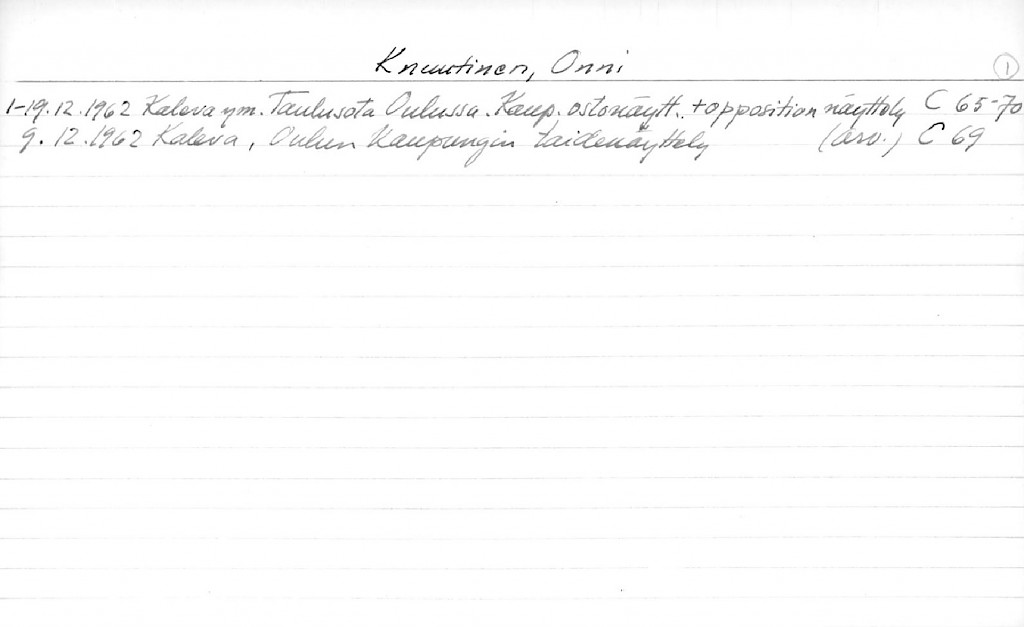 Knuutinen, Onni 1
1-19.12.1962 Kaleva ym. Taulusota Oulussa. Kaup. ostonäytt. + opposition näyttely C 65-70
9.12.1962 Kaleva, Oulun Kaupungin taidenäyttely (arv.) C 69